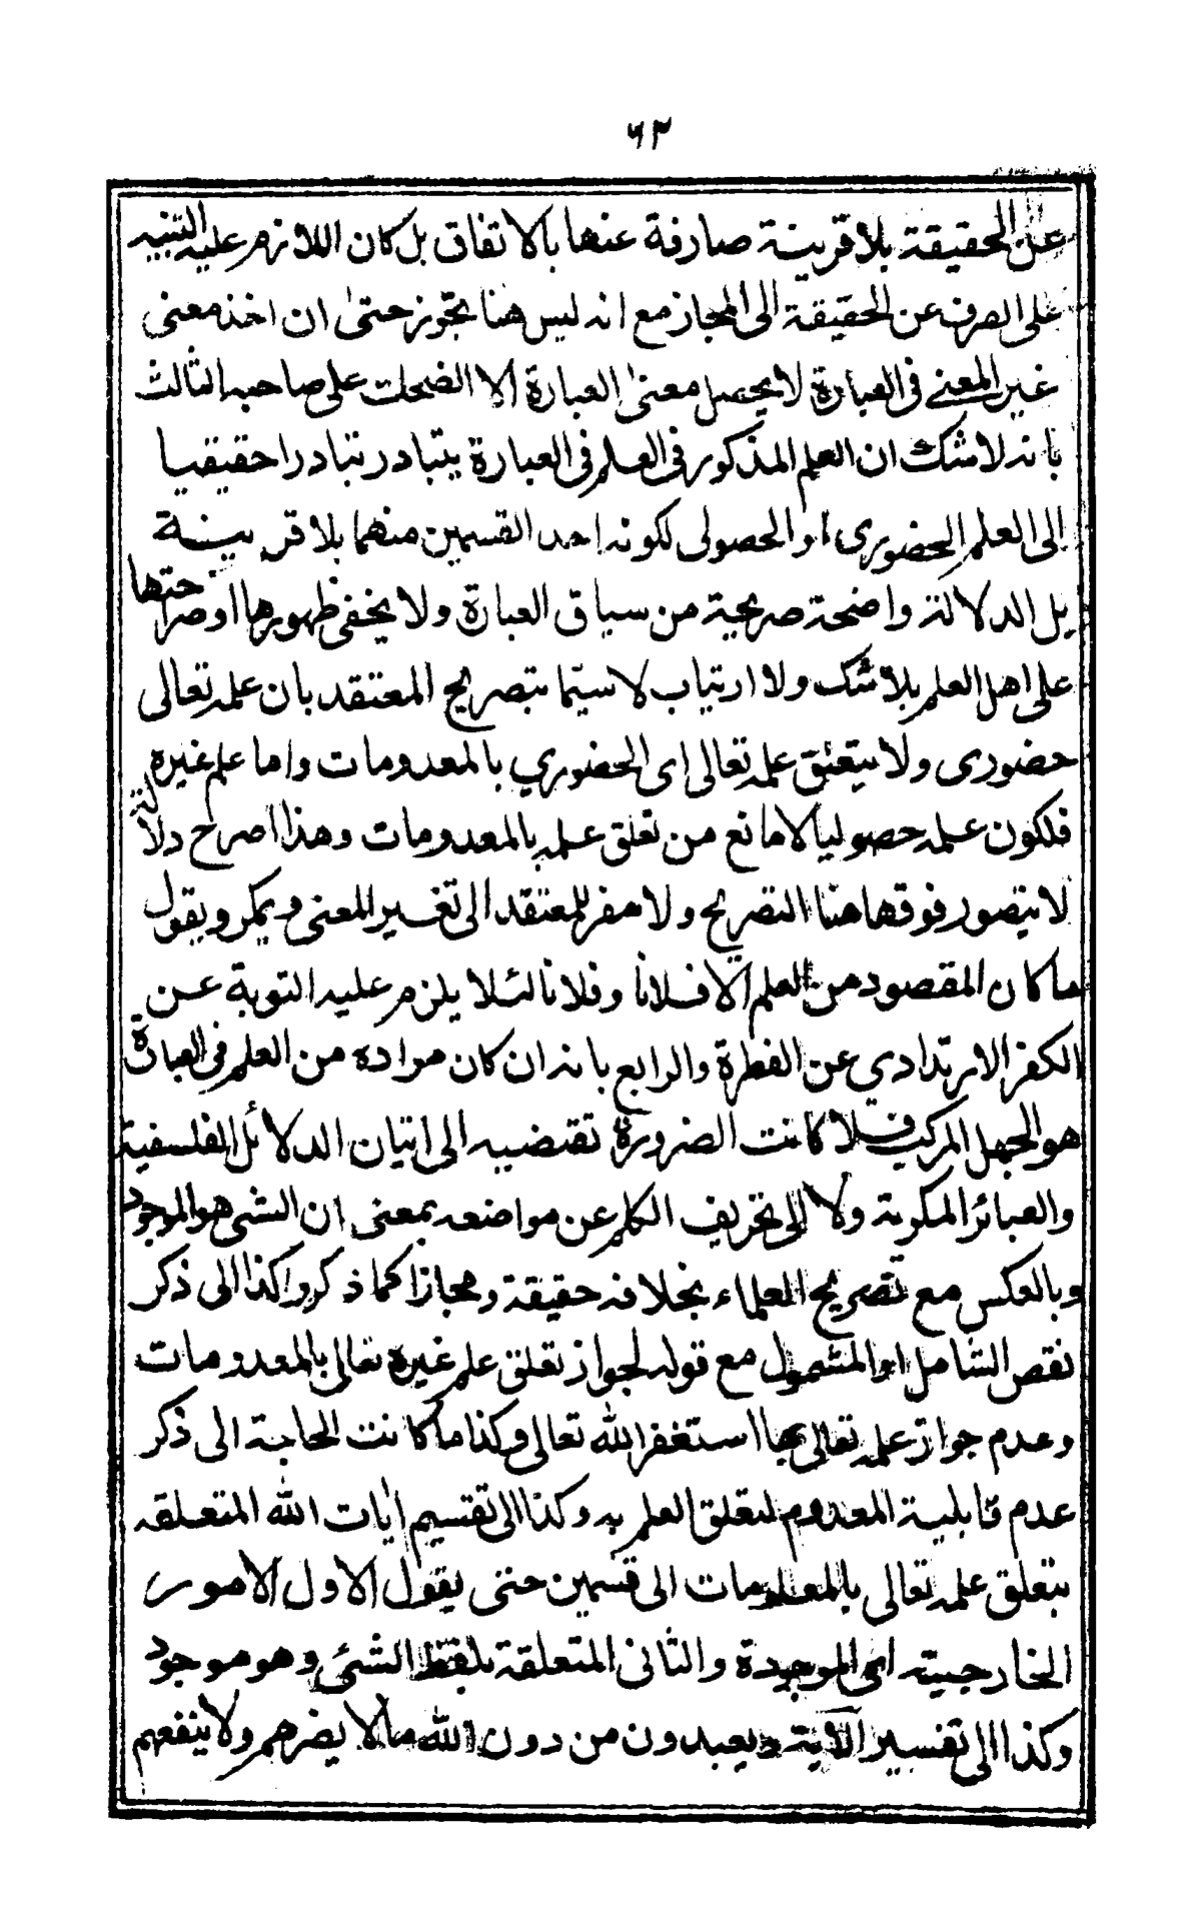 ٦٣
عن الحقيقة بلا قرينة صارفة عنها بالاتفاق بل كان اللازم عليه التنبيه
على الصرف عن الحقيقة الى المجاز مع انه ليس هنا تجوز حتىٰ ان اخذ معنى
غير المعنے فى العبارة لا يحصل معنىٰ العبارة الا الضحك على صاحبه الثالث
بانه لاشك ان العلم المذكور فى العلم فى العبارة يتبادر تبادرا حقيقيا
الى العلم الحضورى او الحصولى لكونه احد القسمين منهما بلا قرينة
بل الدلالة واضحة صريحية من سياق العبارة ولا يخفى ظهورها او صراحتها
على اهل العلم بلا شك ولا ارتياب لا سيّما بتصريح المعتقد بان علمه تعالى
حضورى ولا يتعلق علمه تعالى اى الحضوري بالمعدومات واما علم غيره
فلكون علمه حصوليا لا مانع من تعلق علمه بالمعدومات وهذا اصرح دلالة
لا يتصور فوقها هنا التصريح ولا مفر للمعتقد الى تغسير المعنى ويمكر ويقول
ما كان المقصود من العلم الا فلانا وفلانا لئلا يلزم عليه التوبة عن
الكفر الارتدادي عن الفطرة والرابع بانه ان كان مراده من العلم فى العبارة
هو الجهل المركب فلا كانت الضرورة تقتضيه الى اتيان الدلائل الفلسفية
والعبائر المكرية ولا الى تحريف الكلم عن مواضعه بمعنى ان الشى هو الموجود
وبالعكس مع تصريح العلماء بخلافه حقيقة ومجازا كما ذكر وكذا الى ذكر
نقص الشامل او المشمول مع قوله لجواز تعلق علم غيره تعالى بالمعدومات
وعدم جواز علمه تعالى بها استغفر الله تعالى وكذا ما كانت الحاجة الى ذكر
عدم قابلية المعدوم لتعلق العلم به وكذا الى تقسيم اٰيات الله المتعلقه
بتعلق علمه تعالى بالمعلومات الى قسمين حتى يقول الاول الامور
الخارجيته اى الموجودة والثانى المتعلقة بلفظ الشئى وهو موجود
وكذا الى تفسير الآية ويعبدون من دون الله ما لا يضرهم ولا ينفعهم